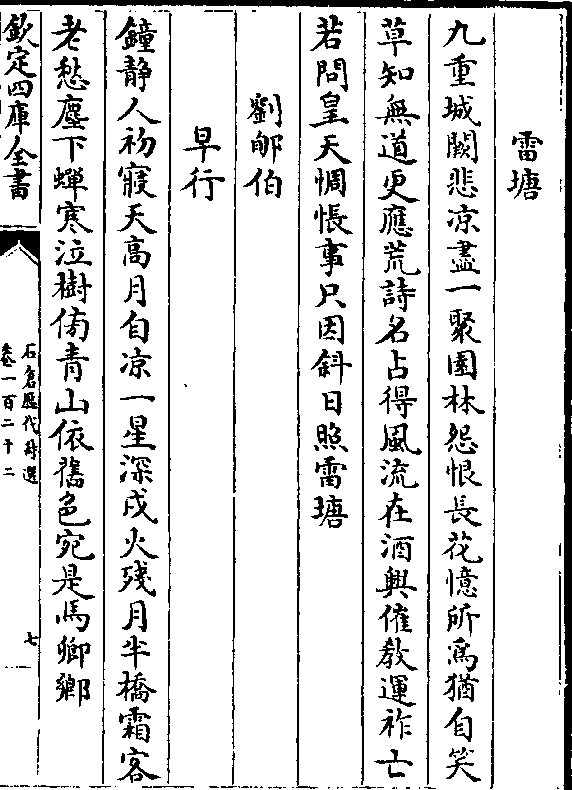 雷塘
九重城闕悲凉盡一聚園林怨恨長花憶所為猶自笑
草知無道更應荒詩名占得風流在酒興催教運祚亡
若問皇天惆悵事只因斜日照雷塘
劉郇伯
早行
鐘静人初寢天高月自凉一星深戍火殘月半橋霜客
老愁塵下蟬寒泣樹傍青山依舊色宛是馬卿鄉
欽定四庫全書
石倉歷代詩選
卷一百二十二
七